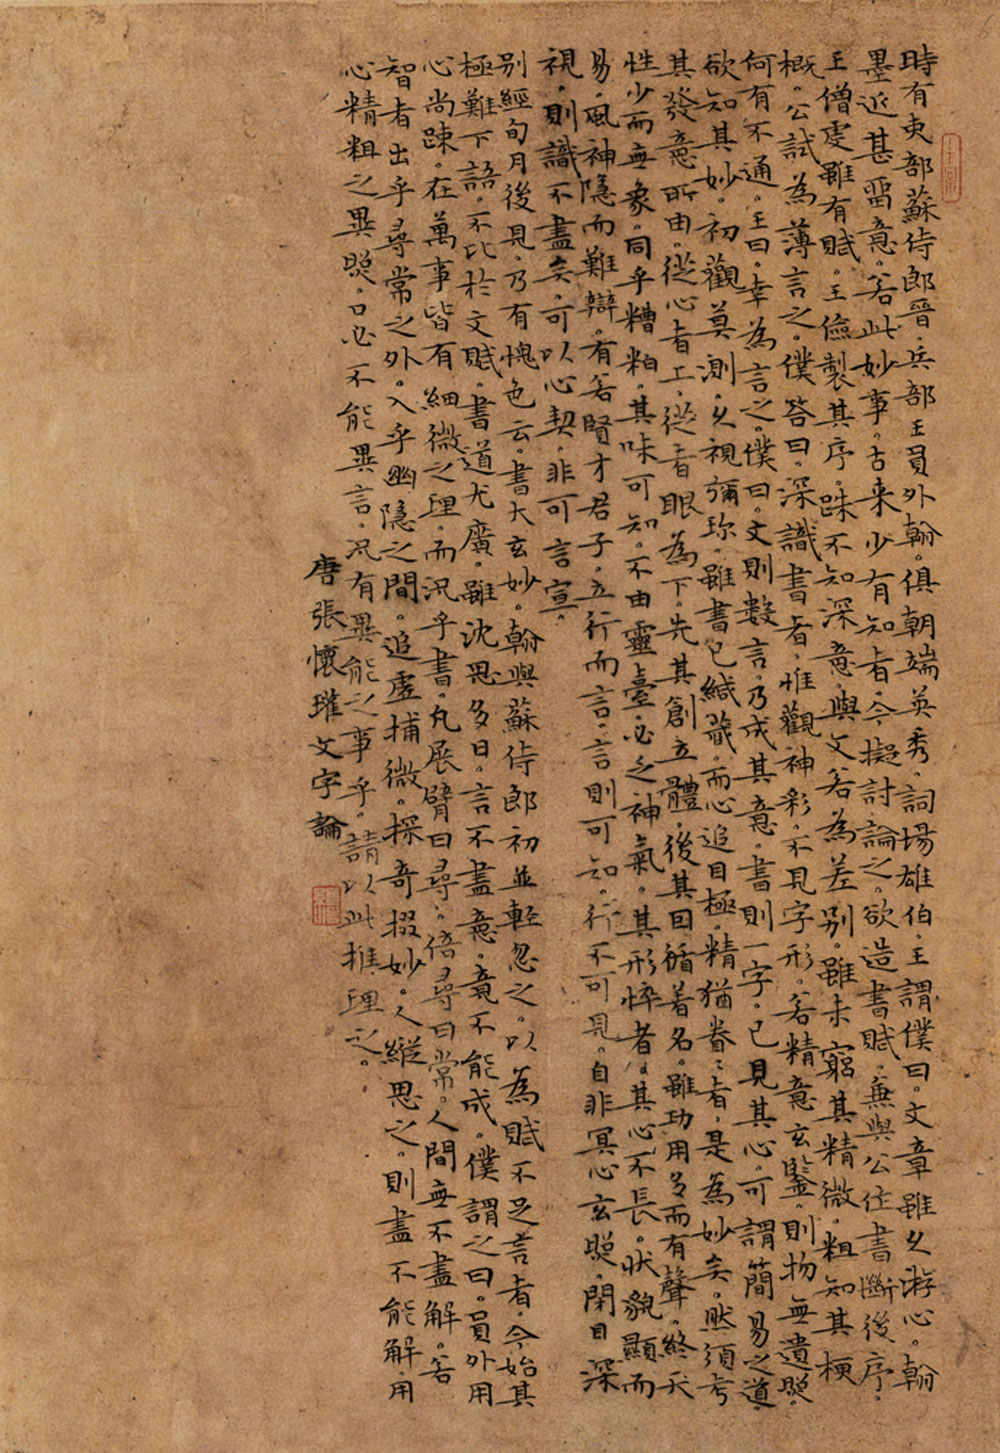 時有吏部蘇侍郎晉。兵部王員外翰。俱朝端英秀。詞場雄伯。王謂僕曰。文章雖久游心。翰
墨近甚留意。若此妙事。古来少有知者。今擬討論之。欲造書賦。兼與公作書斷後序。
王僧虔雖有賦。王儉製其序。殊不知深意。與文若為差别。雖未窮其精微。粗知其梗
概。公試為薄言之。僕答曰。深識書者。惟觀神彩。不見字形。若精意玄鑒。則物無遺照。
何有不通。王曰。幸為言之。僕曰。文則數言。乃成其意。書則一字。已見其心。可謂簡易之道。
欲知其妙。初觀莫測。久視彌珎。雖書已緘藏。而心追目極。精猶眷〻者。是為妙矣。然須考
其發意所由。從心者上。從者眼為下。先其創立體。後其目循著名。雖功用多而有聲。終天
性少而無象。同乎糟粕。其味可知。不由靈臺。必乏神氣。其形悴者。其心不長。状貌顯而
易。風神隱而難辯。有若賢才君子。立行而言。言則可知。行不可見。自非冥心玄照。閉目深
視。則識不盡矣。可以心契。非可言宣。
别經旬月後見。乃有愧色云。書大玄妙。翰與蘇侍郎初並輕忽之。以為賦不足言者。今始其
極難下語。不比於文賦。書道尤廣。雖沈思多日。言不盡意。竟不能成。僕謂之曰。員外用
心尚疎。在萬事皆有細微之理。而況乎書。凡展臂曰尋。倍尋曰常。人間無不盡解。若
智者出乎尋常之外。入乎幽隱之間。追虚捕微。探奇掇妙。人縱思之。則盡不能解。用
心精粗之異照。口必不能異言。況有異能之事乎。請以此推理之。
唐張懷瓘文字論